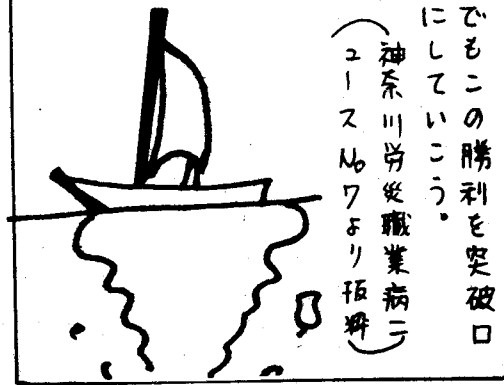 でもこの勝利を突破口
にしていこう。
（神奈川労災職業病ニ
ュースNo7より抜粋）